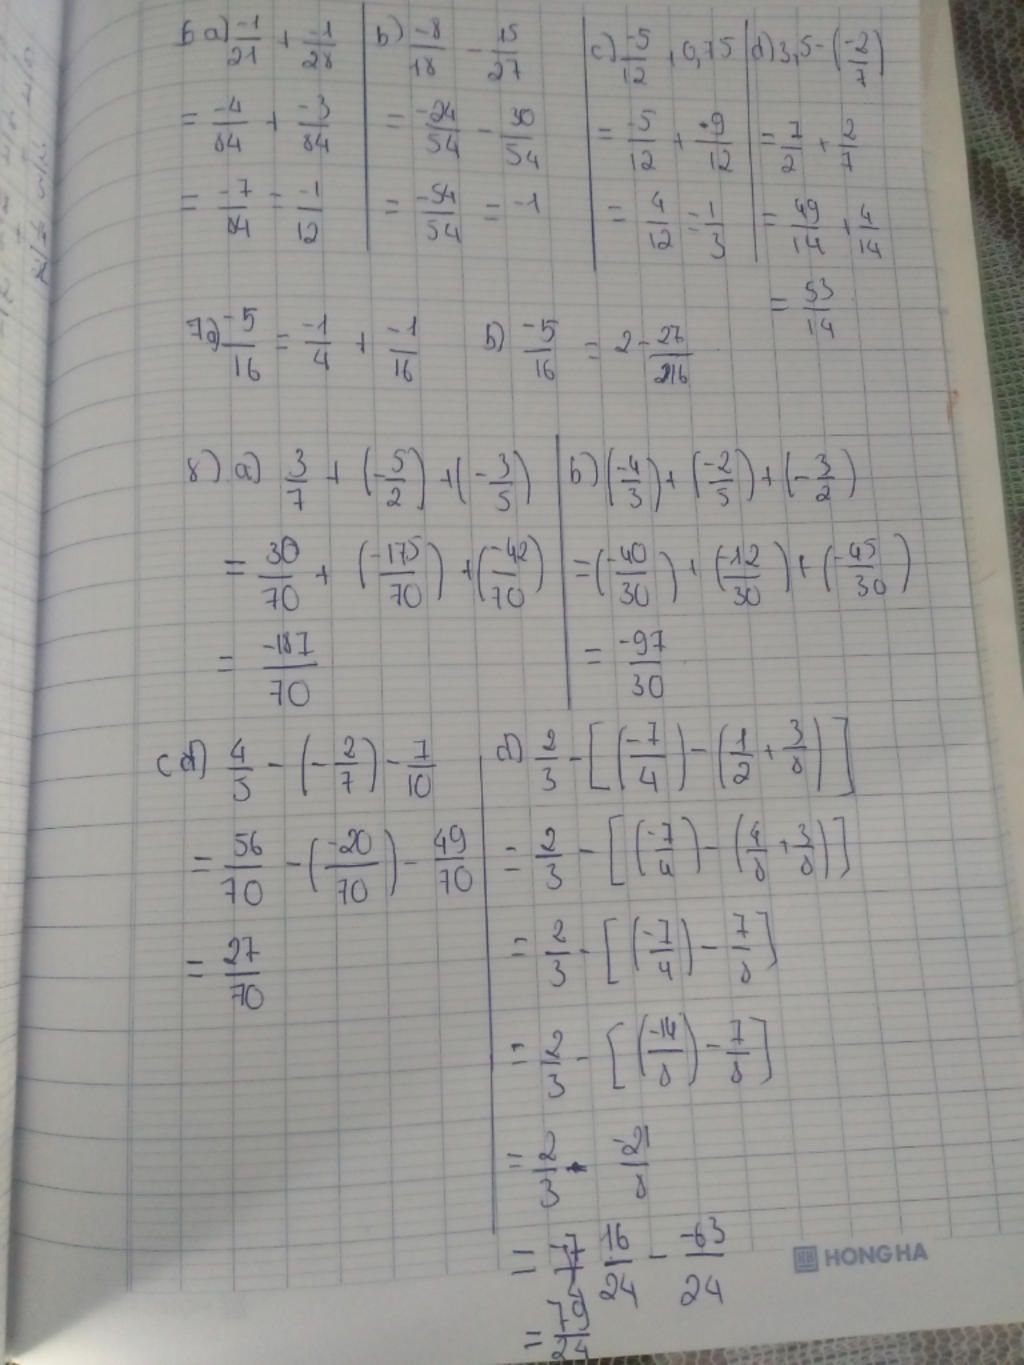 6 a) -1/21 + -1/28
= -4/84 + -3/84
= -7/84 = -1/12
b) -8/18 - 15/27
= -24/54 - 30/54
= -54/54 = -1
c) -5/12 + 0,75
= -5/12 + 9/12
= 4/12 = 1/3
d) 3,5 - (-2/7)
= 7/2 + 2/7
= 49/14 + 4/14
= 53/14
7a) -5/16 = -1/4 + -1/16
b) -5/16 = 2 - 27/216
8) a) 3/7 + (-5/2) + (-3/5)
= 30/70 + (-175/70) + (-42/70)
= -187/70
b) (-4/3) + (-2/5) + (-3/2)
= (-40/30) + (-12/30) + (-45/30)
= -97/30
c d) 4/5 - (-2/7) - 7/10
= 56/70 - (-20/70) - 49/70
= 27/70
d) 2/3 - [(-7/4) - (1/2 + 3/8)]
= 2/3 - [(-7/4) - (4/8 + 3/8)]
= 2/3 - [(-7/4) - 7/8]
= 2/3 - [(-14/8) - 7/8]
= 2/3 - -21/8
= 16/24 - -63/24
= 79/24
HONG HA